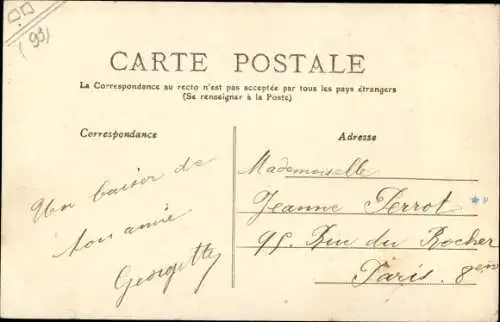 (93)
CARTE POSTALE
La Correspondance au recto n'est pas acceptée par tous les pays étrangers
(Se renseigner à la Poste)
Correspondance
Adresse
Un baiser de
ton amie
Georgette
Mademoiselle
Jeanne Perrot
95. Rue du Rocher
Paris. 8eme